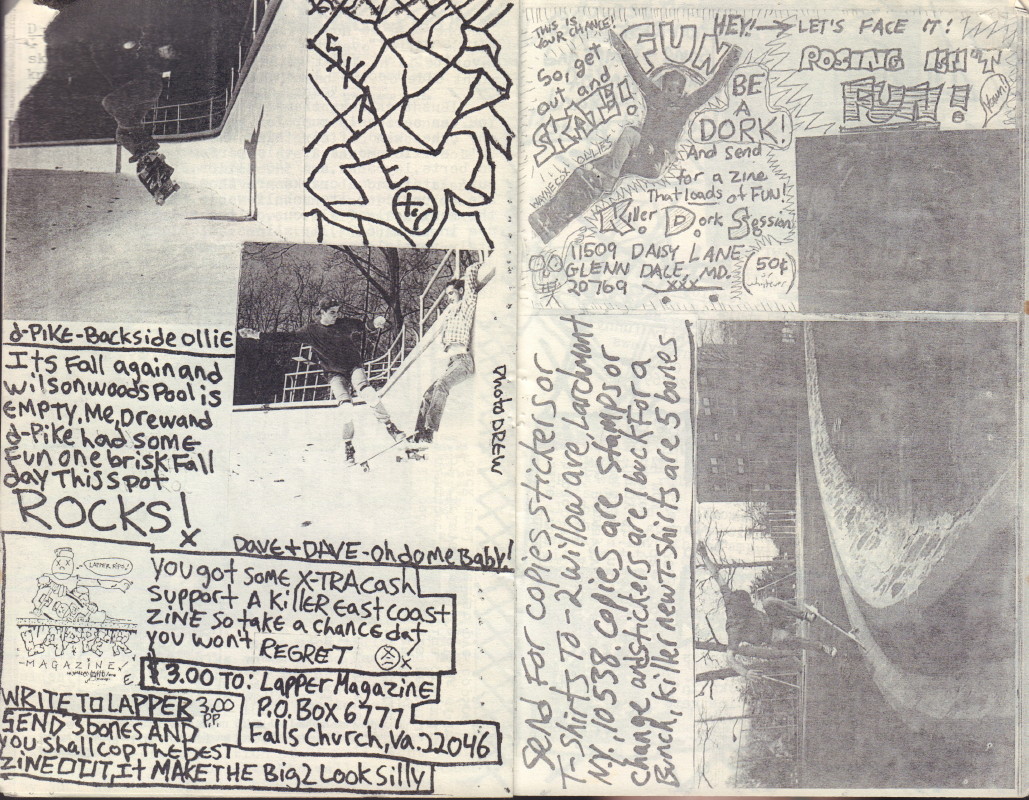 d-PiKE-Backside ollie
ITS Fall again and
wilsonwoods Pool is
EMPTY, Me, Drew and
d-Pike had some
Fun one brisk Fall
day This spot
ROCKS!
Photo DREW
DAVE + DAVE - Oh do me Baby!
LAPPER RIPS!
-MAGAZINE
you got some X-TRA cash
Support A KillER East coast
ZiNE So take a chance dat
you won't REGRET
$3.00 TO: Lapper Magazine
P.O. BOX 6777
Falls Church, Va. 22046
WRITE TO LAPPER 3.00 P.P.
SEND 3 bones AND
you shall cop The best
ZINE OUT, It MAKE THE Big 2 Look Silly
THIS IS
YOUR CHANCE!
So, get
out and
SKATE!
WAYNE COX OLLIES
FUN
HEY! → LET'S FACE IT!
POSING ISN'T
FUN!
BE
A
DORK!
And send
for a zine
That loads of FUN!
Killer Dork Session
11509 DAISY LANE
GLENN DALE, MD.
20769 XXX
(50¢
or
whatever)
Send For copies stickers or
T-Shirts To - 2 willow ave, Larchmont
NY. 10538. copies are stamps or
change and stickers are 1 buck for a
Bunch, killer new T-shirts are 5 bones